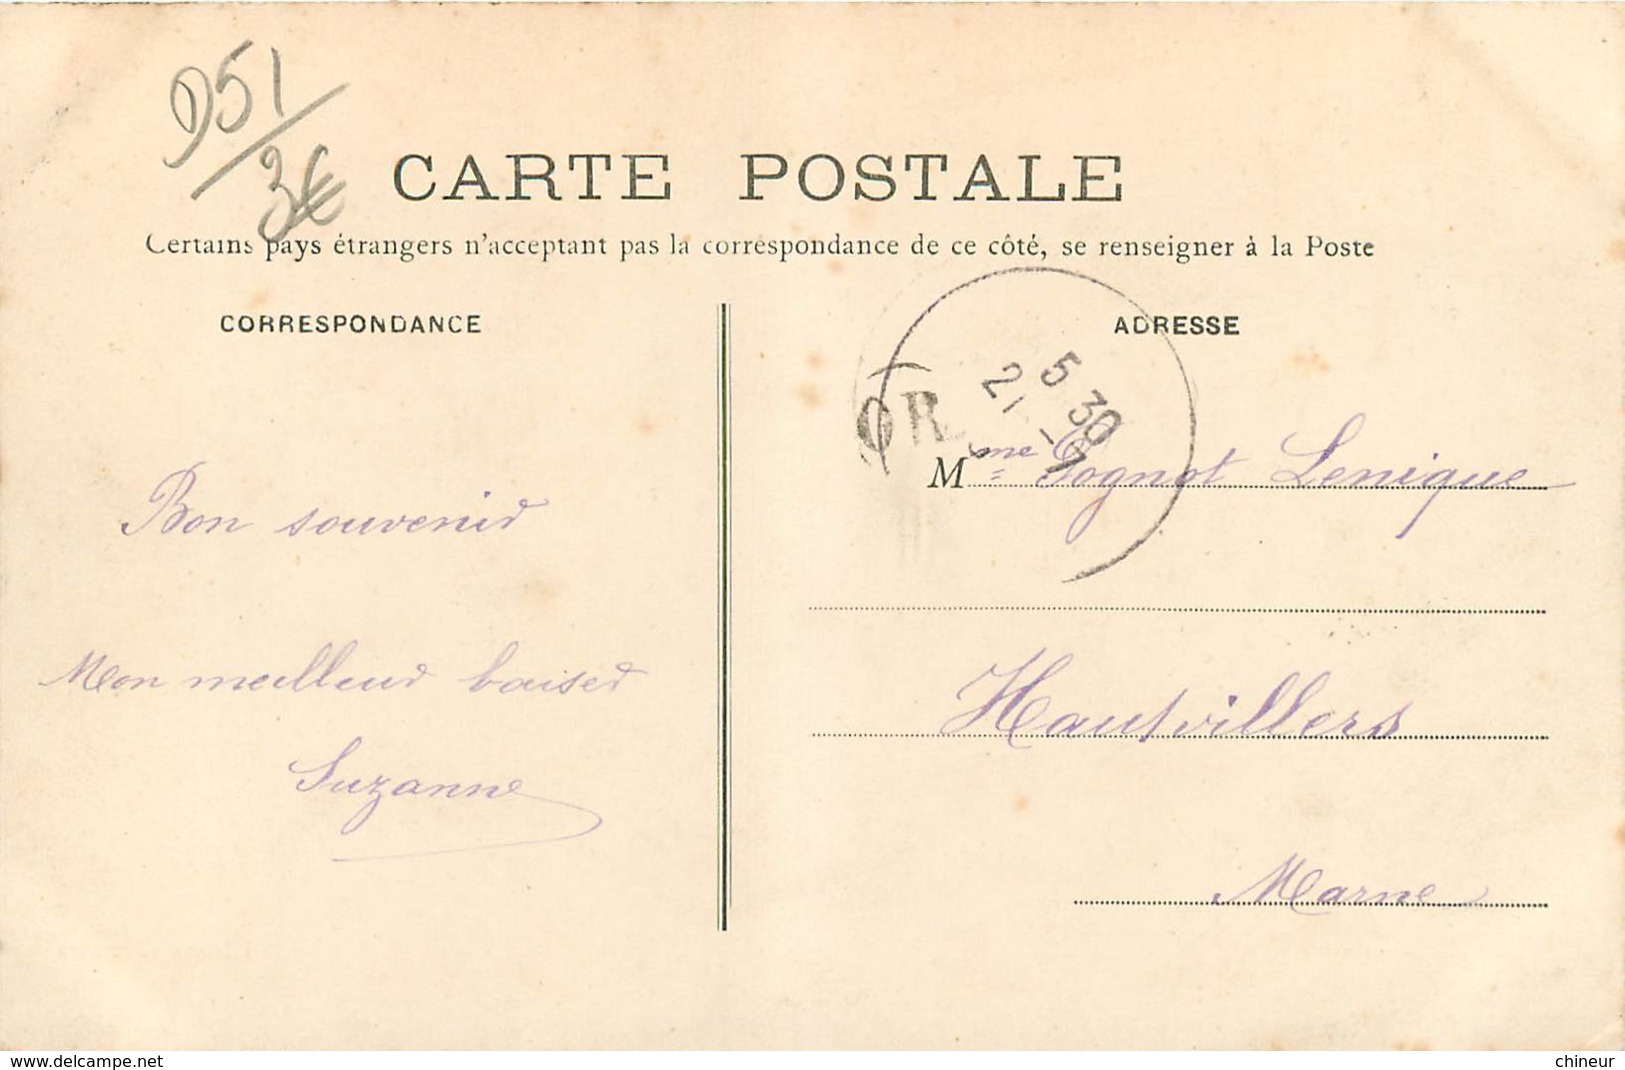 D51/
3€
CARTE POSTALE
Certains pays étrangers n'acceptant pas la correspondance de ce côté, se renseigner à la Poste
CORRESPONDANCE
ADRESSE
5 30
21 - 7
OR
Mme Cognot Lenique
Bon souvenir
Mon meilleur baiser
Suzanne
Hautvillers
Marne
www.delcampe.net
chineur